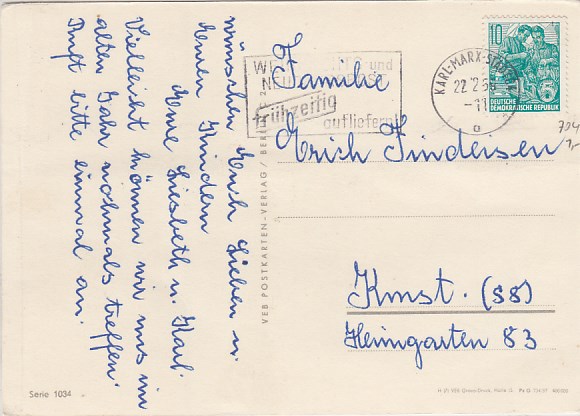 wünschen Euch Lieben u.
Deinen Kindern
Eure Liesbeth u. Karl.
Vielleicht können wir uns im
alten Jahr nochmals treffen.
Ruft bitte einmal an.
Serie 1034
VEB POSTKARTEN-VERLAG / BERLIN
und
frühzeitig
aufliefern
KARL-MARX-STADT
22.12.5
10
DEUTSCHE
DEMOKRATISCHE REPUBLIK
Familie
Erich Findersen
Kmst. (S8)
Heimgarten 83